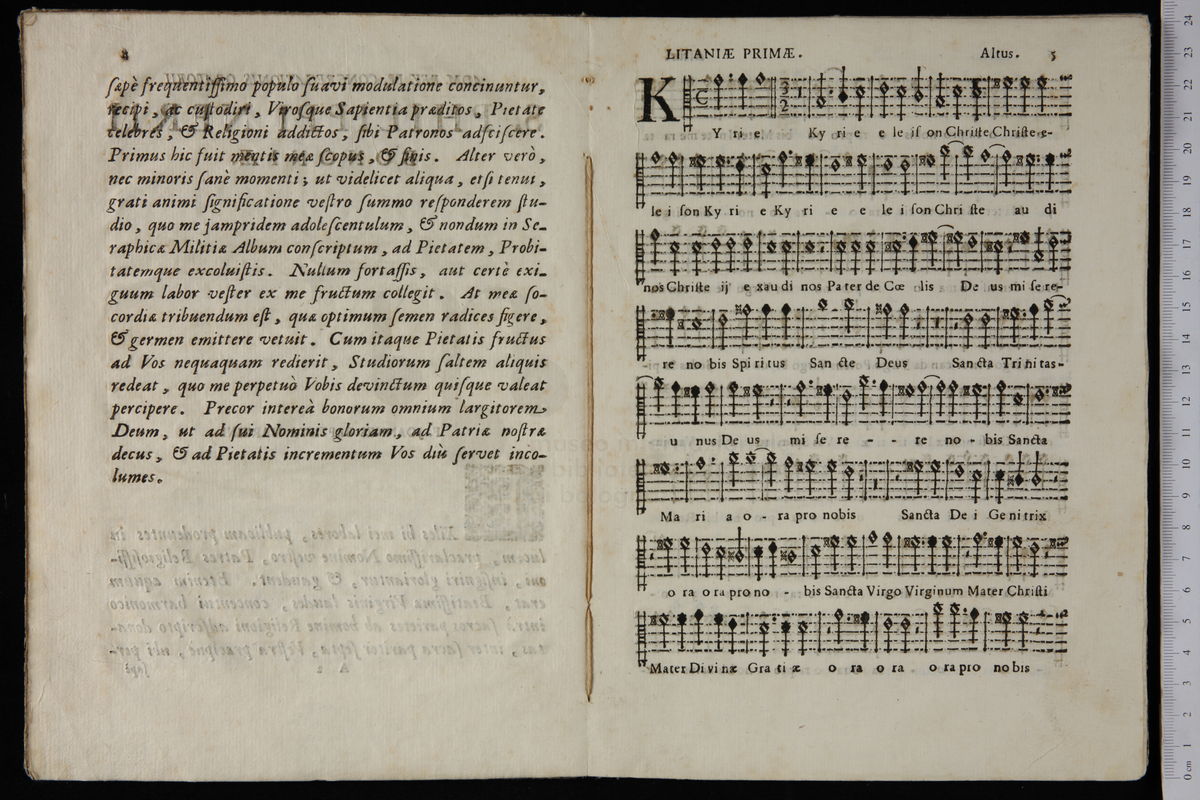 4
ſæpè frequentiſſimo populo ſuavi modulatione concinuntur,
recipi, ac cuſtodiri, Viroſque Sapientia præditos, Pietate
celebres, & Religioni addictos, ſibi Patronos adſciſcere.
Primus hic fuit mentis meæ ſcopus, & finis. Alter verò,
nec minoris ſanè momenti; ut videlicet aliqua, etſi tenui,
grati animi ſignificatione veſtro ſummo reſponderem ſtu-
dio, quo me jampridem adoleſcentulum, & nondum in Se-
raphicæ Militiæ Album conſcriptum, ad Pietatem, Probi-
tatemque excoluiſtis. Nullum fortaſſis, aut certè exi-
guum labor veſter ex me fructum collegit. At meæ ſo-
cordiæ tribuendum eſt, quæ optimum ſemen radices figere,
& germen emittere vetuit. Cum itaque Pietatis fructus
ad Vos nequaquam redierit, Studiorum ſaltem aliquis
redeat, quo me perpetuò Vobis devinctum quiſque valeat
percipere. Precor intereà bonorum omnium largitorem
Deum, ut ad ſui Nominis gloriam, ad Patriæ noſtræ
decus, & ad Pietatis incrementum Vos diù ſervet inco-
lumes.
LITANIÆ PRIMÆ. Altus. 5
K Y ri e Ky ri e e le iſ on Chriſte Chriſte e-
le i ſon Ky ri e Ky ri e e le i ſon Chri ſte au di
nos Chriſte ij e xau di nos Pa ter de Cœ lis De us mi ſe re-
- re no bis Spi ri tus San cte Deus San cta Tri ni tas-
u nus De us mi ſe re - - re no - bis Sancta
Ma ri a o - ra pro nobis Sancta De i Ge ni trix
o ra o ra pro no - bis Sancta Virgo Virginum Mater Chriſti
Mater Di vi næ Gra ti æ o ra o ra o ra pro no bis